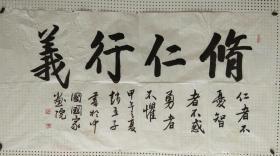 脩仁行義
仁者不
憂智
者不惑
勇者
不懼
甲午夏
於中
國國家
畫院